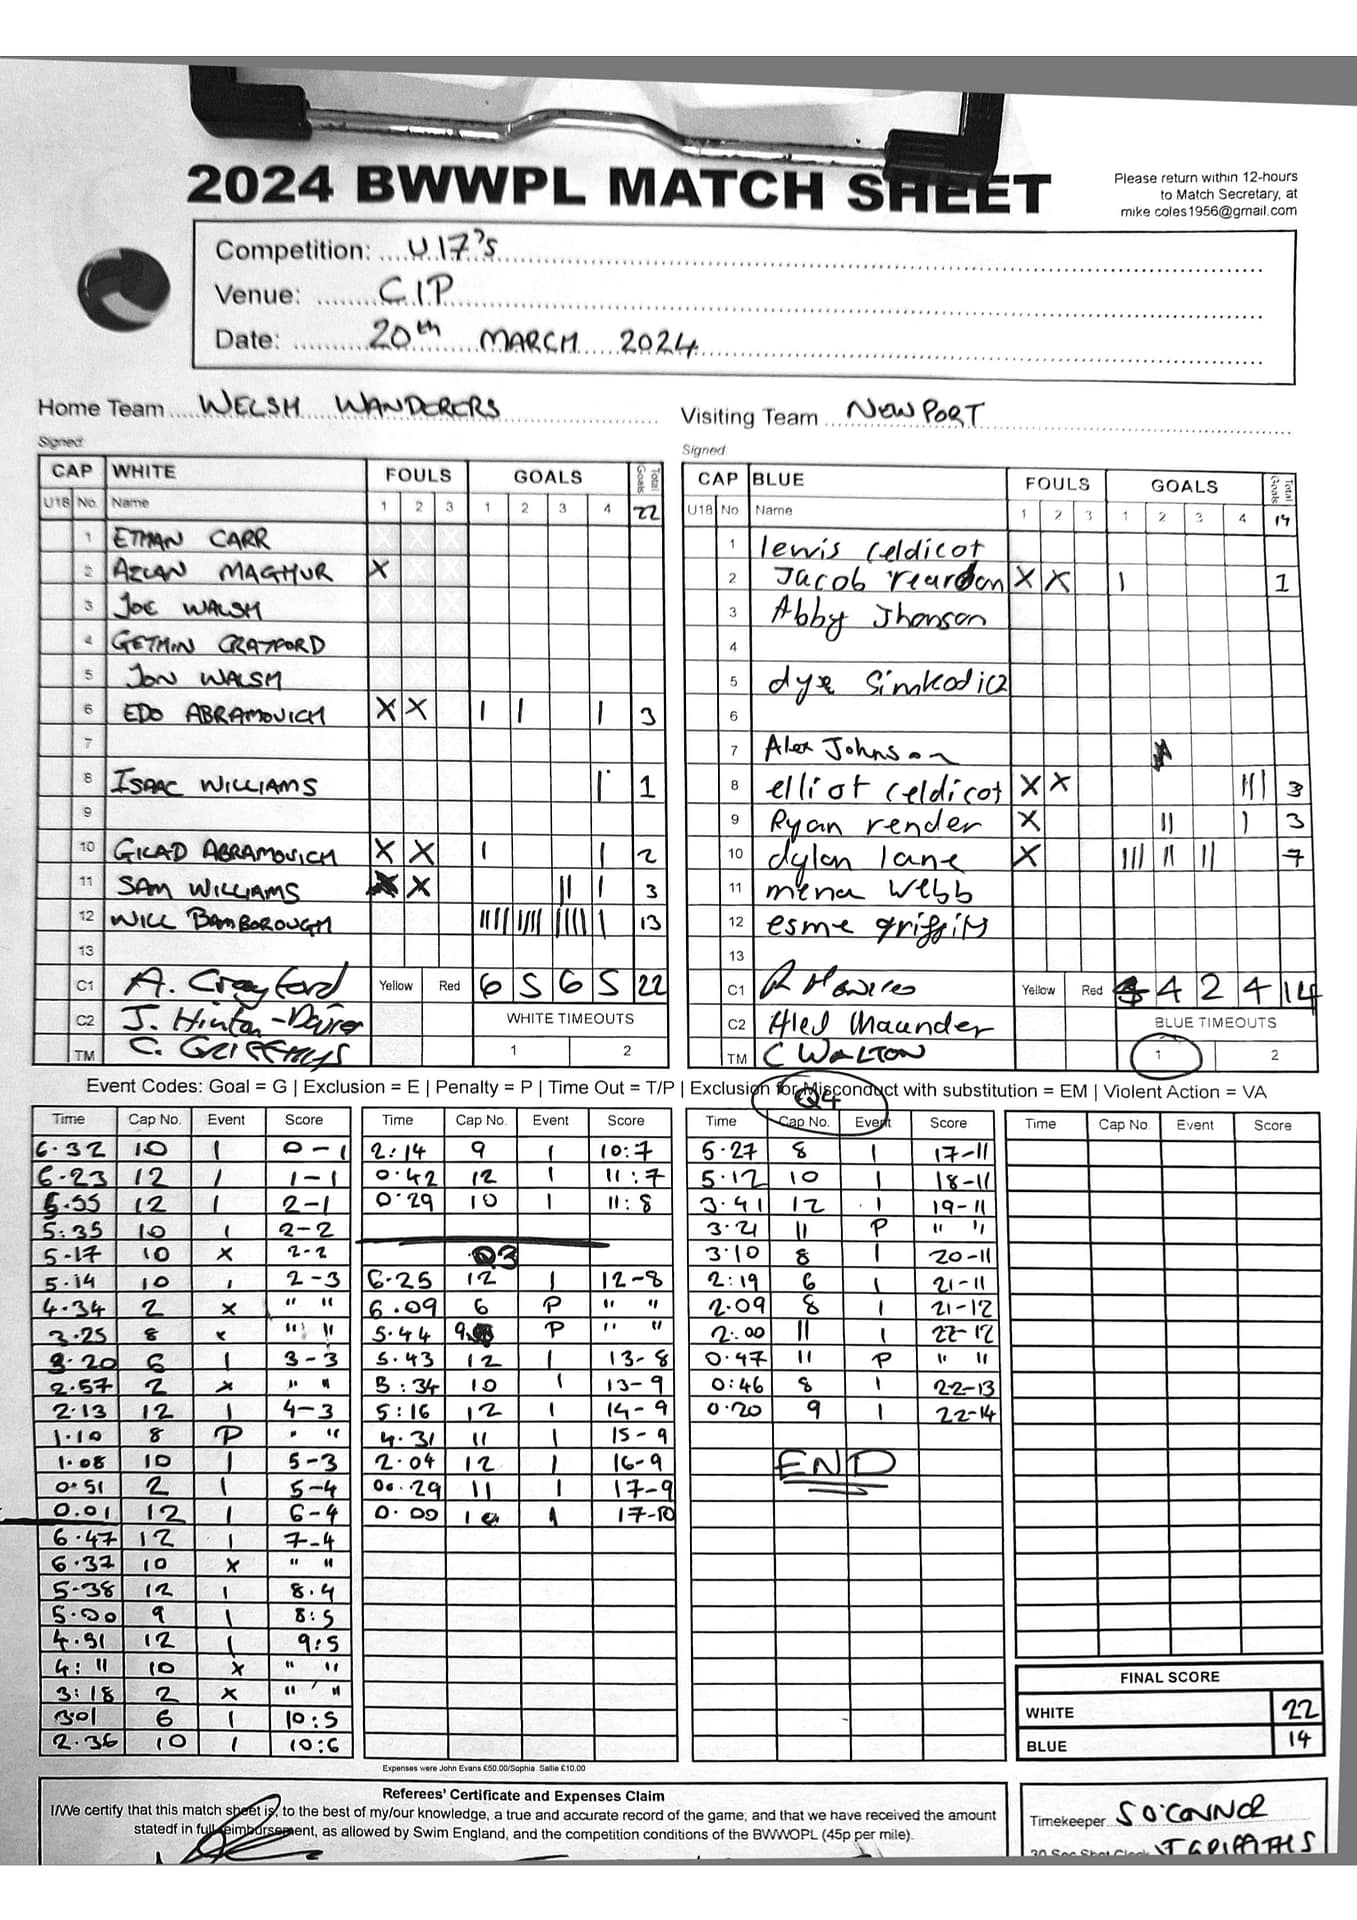 2024 BWWPL MATCH SHEET
Please return within 12-hours
to Match Secretary, at
mike coles1956@gmail.com
Competition: U17's
Venue: CIP
Date: 20th MARCH 2024
Home Team WELSH WANDERERS
Visiting Team NEWPORT
Signed
Signed
CAP WHITE FOULS GOALS Total Goals
U18 No. Name 1 2 3 1 2 3 4 22
1 ETHAN CARR
2 AZLAN MAGHUR X
3 JOE WALSH
4 GETHIN CRATFORD
5 JON WALSH
6 EDO ABRAMOVICH X X I I I 3
7
8 ISAAC WILLIAMS I 1
9
10 GILAD ABRAMOVICH X X I I 2
11 SAM WILLIAMS X X II I 3
12 WILL BAMBOROUGH IIII IIII IIII I 13
13
C1 A. Crayford Yellow Red 6 5 6 5 22
C2 J. Hinton-Davies WHITE TIMEOUTS
TM C. GRIFFITHS 1 2
CAP BLUE FOULS GOALS Total Goals
U18 No Name 1 2 3 1 2 3 4 14
1 lewis celdicot
2 Jacob reardon X X I 1
3 Abby Jhonson
4
5 dye Simkodicz
6
7 Alex Johnson
8 elliot celdicot X X III 3
9 Ryan render X II I 3
10 dylan lane X III II II 7
11 mena webb
12 esme griffits
13
C1 Yellow Red 4 4 2 4 14
C2 Aled Maunder BLUE TIMEOUTS
TM C WALTON 1 2
Event Codes: Goal = G | Exclusion = E | Penalty = P | Time Out = T/P | Exclusion for Misconduct with substitution = EM | Violent Action = VA
Q4
Time Cap No. Event Score
6.32 10 1 0-1
6.23 12 1 1-1
5.55 12 1 2-1
5.35 10 1 2-2
5.17 10 x 2-2
5.14 10 1 2-3
4.34 2 x " "
3.25 8 x " "
3.20 6 1 3-3
2.57 2 x " "
2.13 12 1 4-3
1.10 8 P " "
1.08 10 1 5-3
0.51 2 1 5-4
0.01 12 1 6-4
6.47 12 1 7-4
6.37 10 x " "
5.38 12 1 8.4
5.00 9 1 8:5
4.51 12 1 9:5
4:11 10 x " "
3:18 2 x " "
301 6 1 10:5
2.36 10 1 10:6
Time Cap No. Event Score
2:14 9 1 10:7
0.42 12 1 11:7
0:29 10 1 11:8
Q3
6.25 12 1 12-8
6.09 6 P " "
5.44 9 P " "
5.43 12 1 13-8
5:34 10 1 13-9
5:16 12 1 14-9
4.31 11 1 15-9
2.04 12 1 16-9
00.29 11 1 17-9
0.00 10 1 17-10
Time Cap No. Event Score
5-27 8 1 17-11
5.12 10 1 18-11
3.41 12 1 19-11
3.21 11 P " "
3.10 8 1 20-11
2:19 6 1 21-11
2.09 8 1 21-12
2:00 11 1 22-12
0.47 11 P " "
0:46 8 1 22-13
0.20 9 1 22-14
END
Time Cap No. Event Score
FINAL SCORE
WHITE 22
BLUE 14
Expenses were John Evans £50.00/Sophia Sallie £10.00
Referees' Certificate and Expenses Claim
I/We certify that this match sheet is, to the best of my/our knowledge, a true and accurate record of the game; and that we have received the amount
statedf in full reimbursement, as allowed by Swim England, and the competition conditions of the BWWOPL (45p per mile).
Timekeeper S O'CONNOR
30 Sec Shot Clock T GRIFFITHS